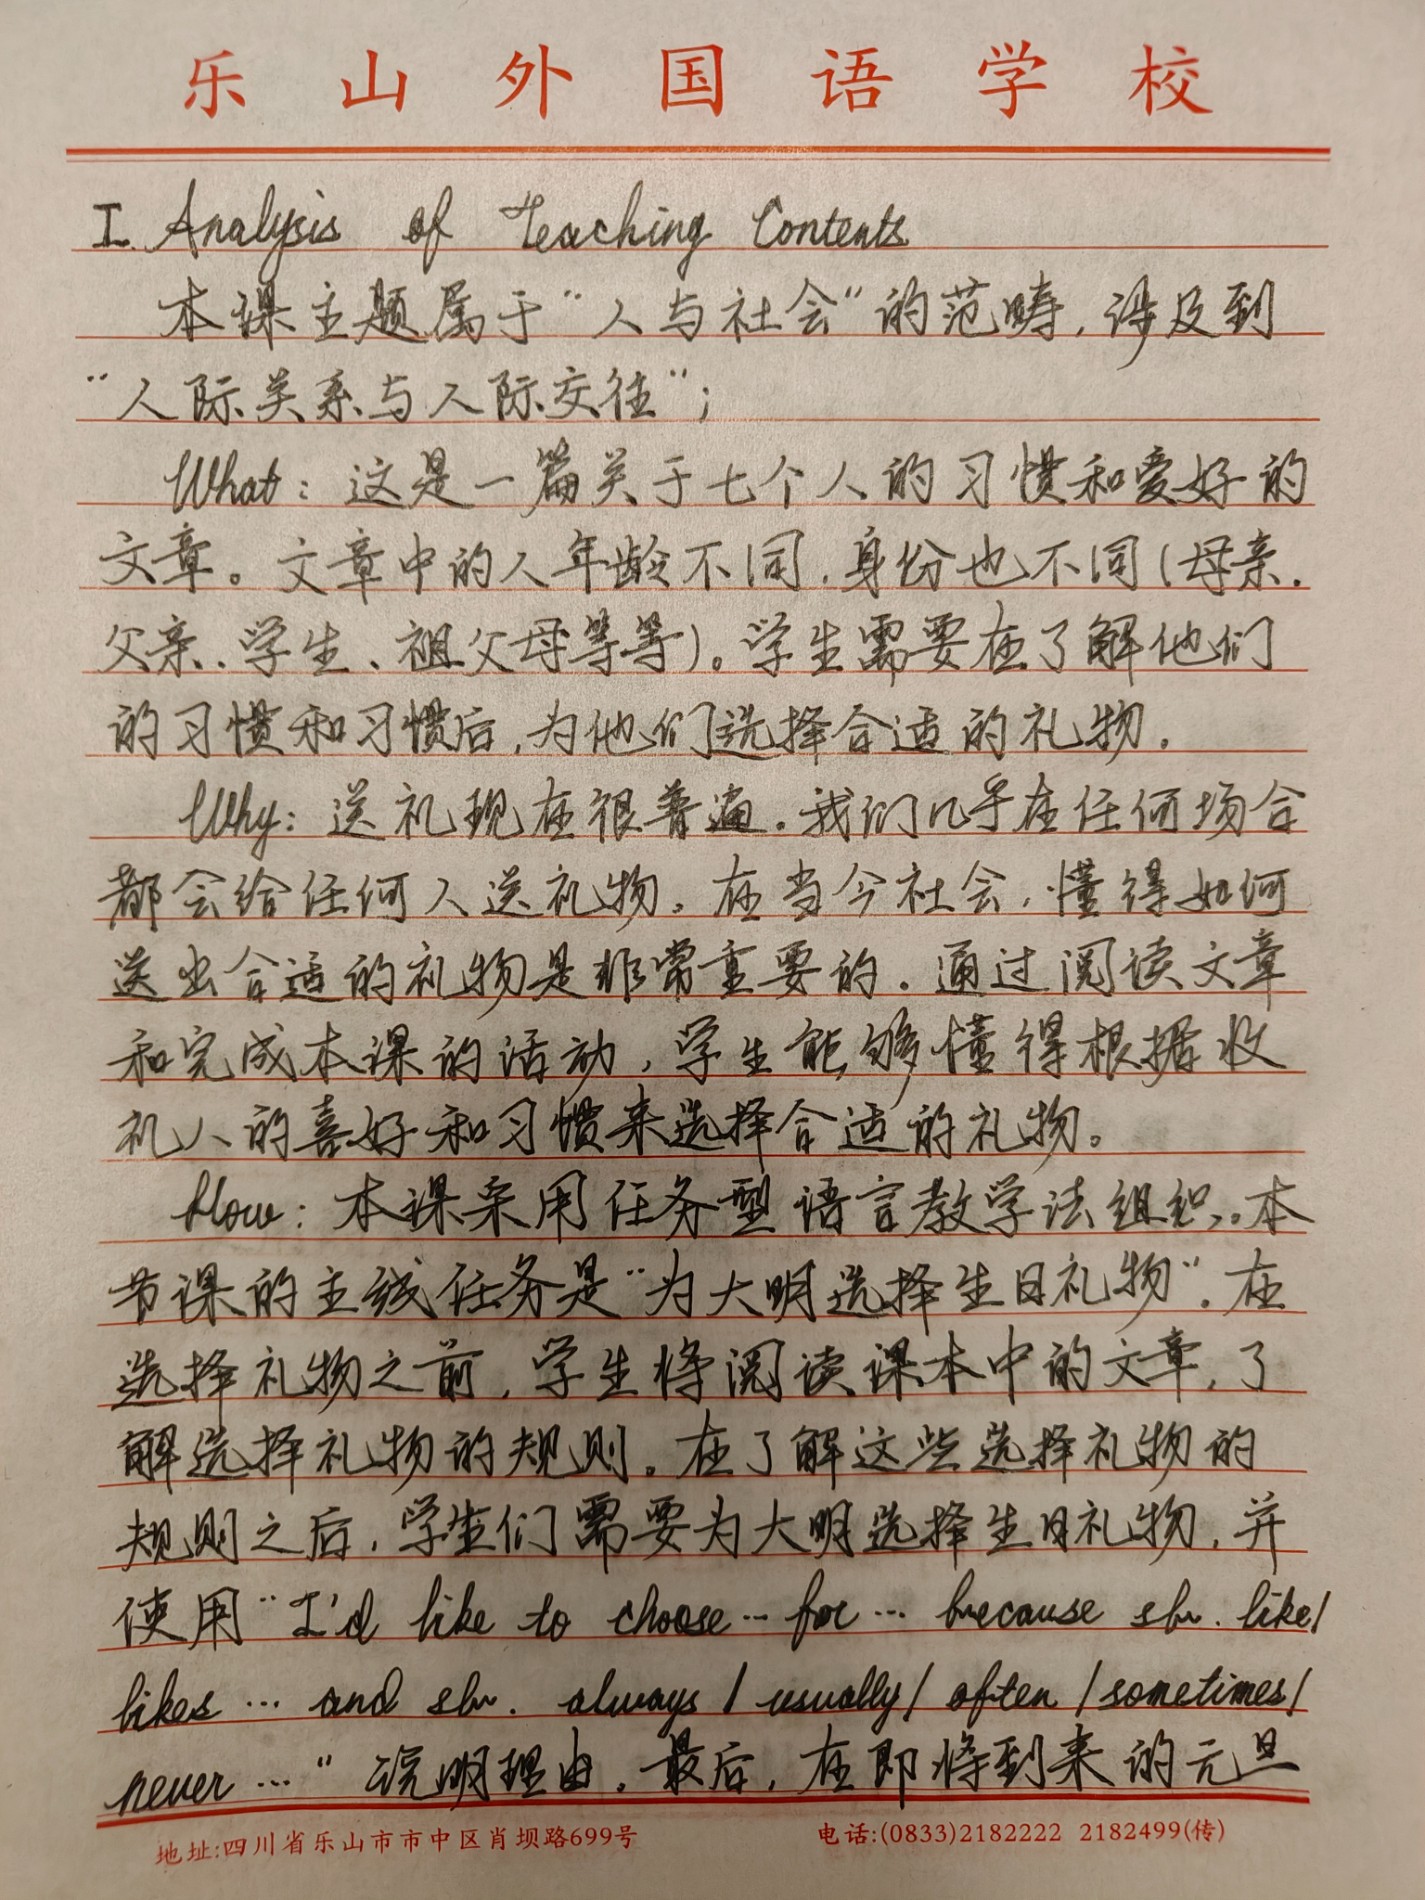 乐山外国语学校
I. Analysis of Teaching Contents
本课主题属于“人与社会”的范畴，涉及到
“人际关系与人际交往”；
What: 这是一篇关于七个人的习惯和爱好的
文章。文章中的人年龄不同，身份也不同(母亲、
父亲、学生、祖父母等等)。学生需要在了解他们
的习惯和习惯后，为他们选择合适的礼物。
Why: 送礼现在很普遍。我们几乎在任何场合
都会给任何人送礼物。在当今社会，懂得如何
送出合适的礼物是非常重要的。通过阅读文章
和完成本课的活动，学生能够懂得根据收
礼人的喜好和习惯来选择合适的礼物。
How: 本课采用任务型语言教学法组织。本
节课的主线任务是“为大明选择生日礼物”。在
选择礼物之前，学生将阅读课本中的文章，了
解选择礼物的规则。在了解这些选择礼物的
规则之后，学生们需要为大明选择生日礼物，并
使用“I'd like to choose … for … because sb. like/
likes … and sb. always / usually / often / sometimes /
never …”说明理由。最后，在即将到来的元旦
地址:四川省乐山市市中区肖坝路699号 电话:(0833)2182222 2182499(传)